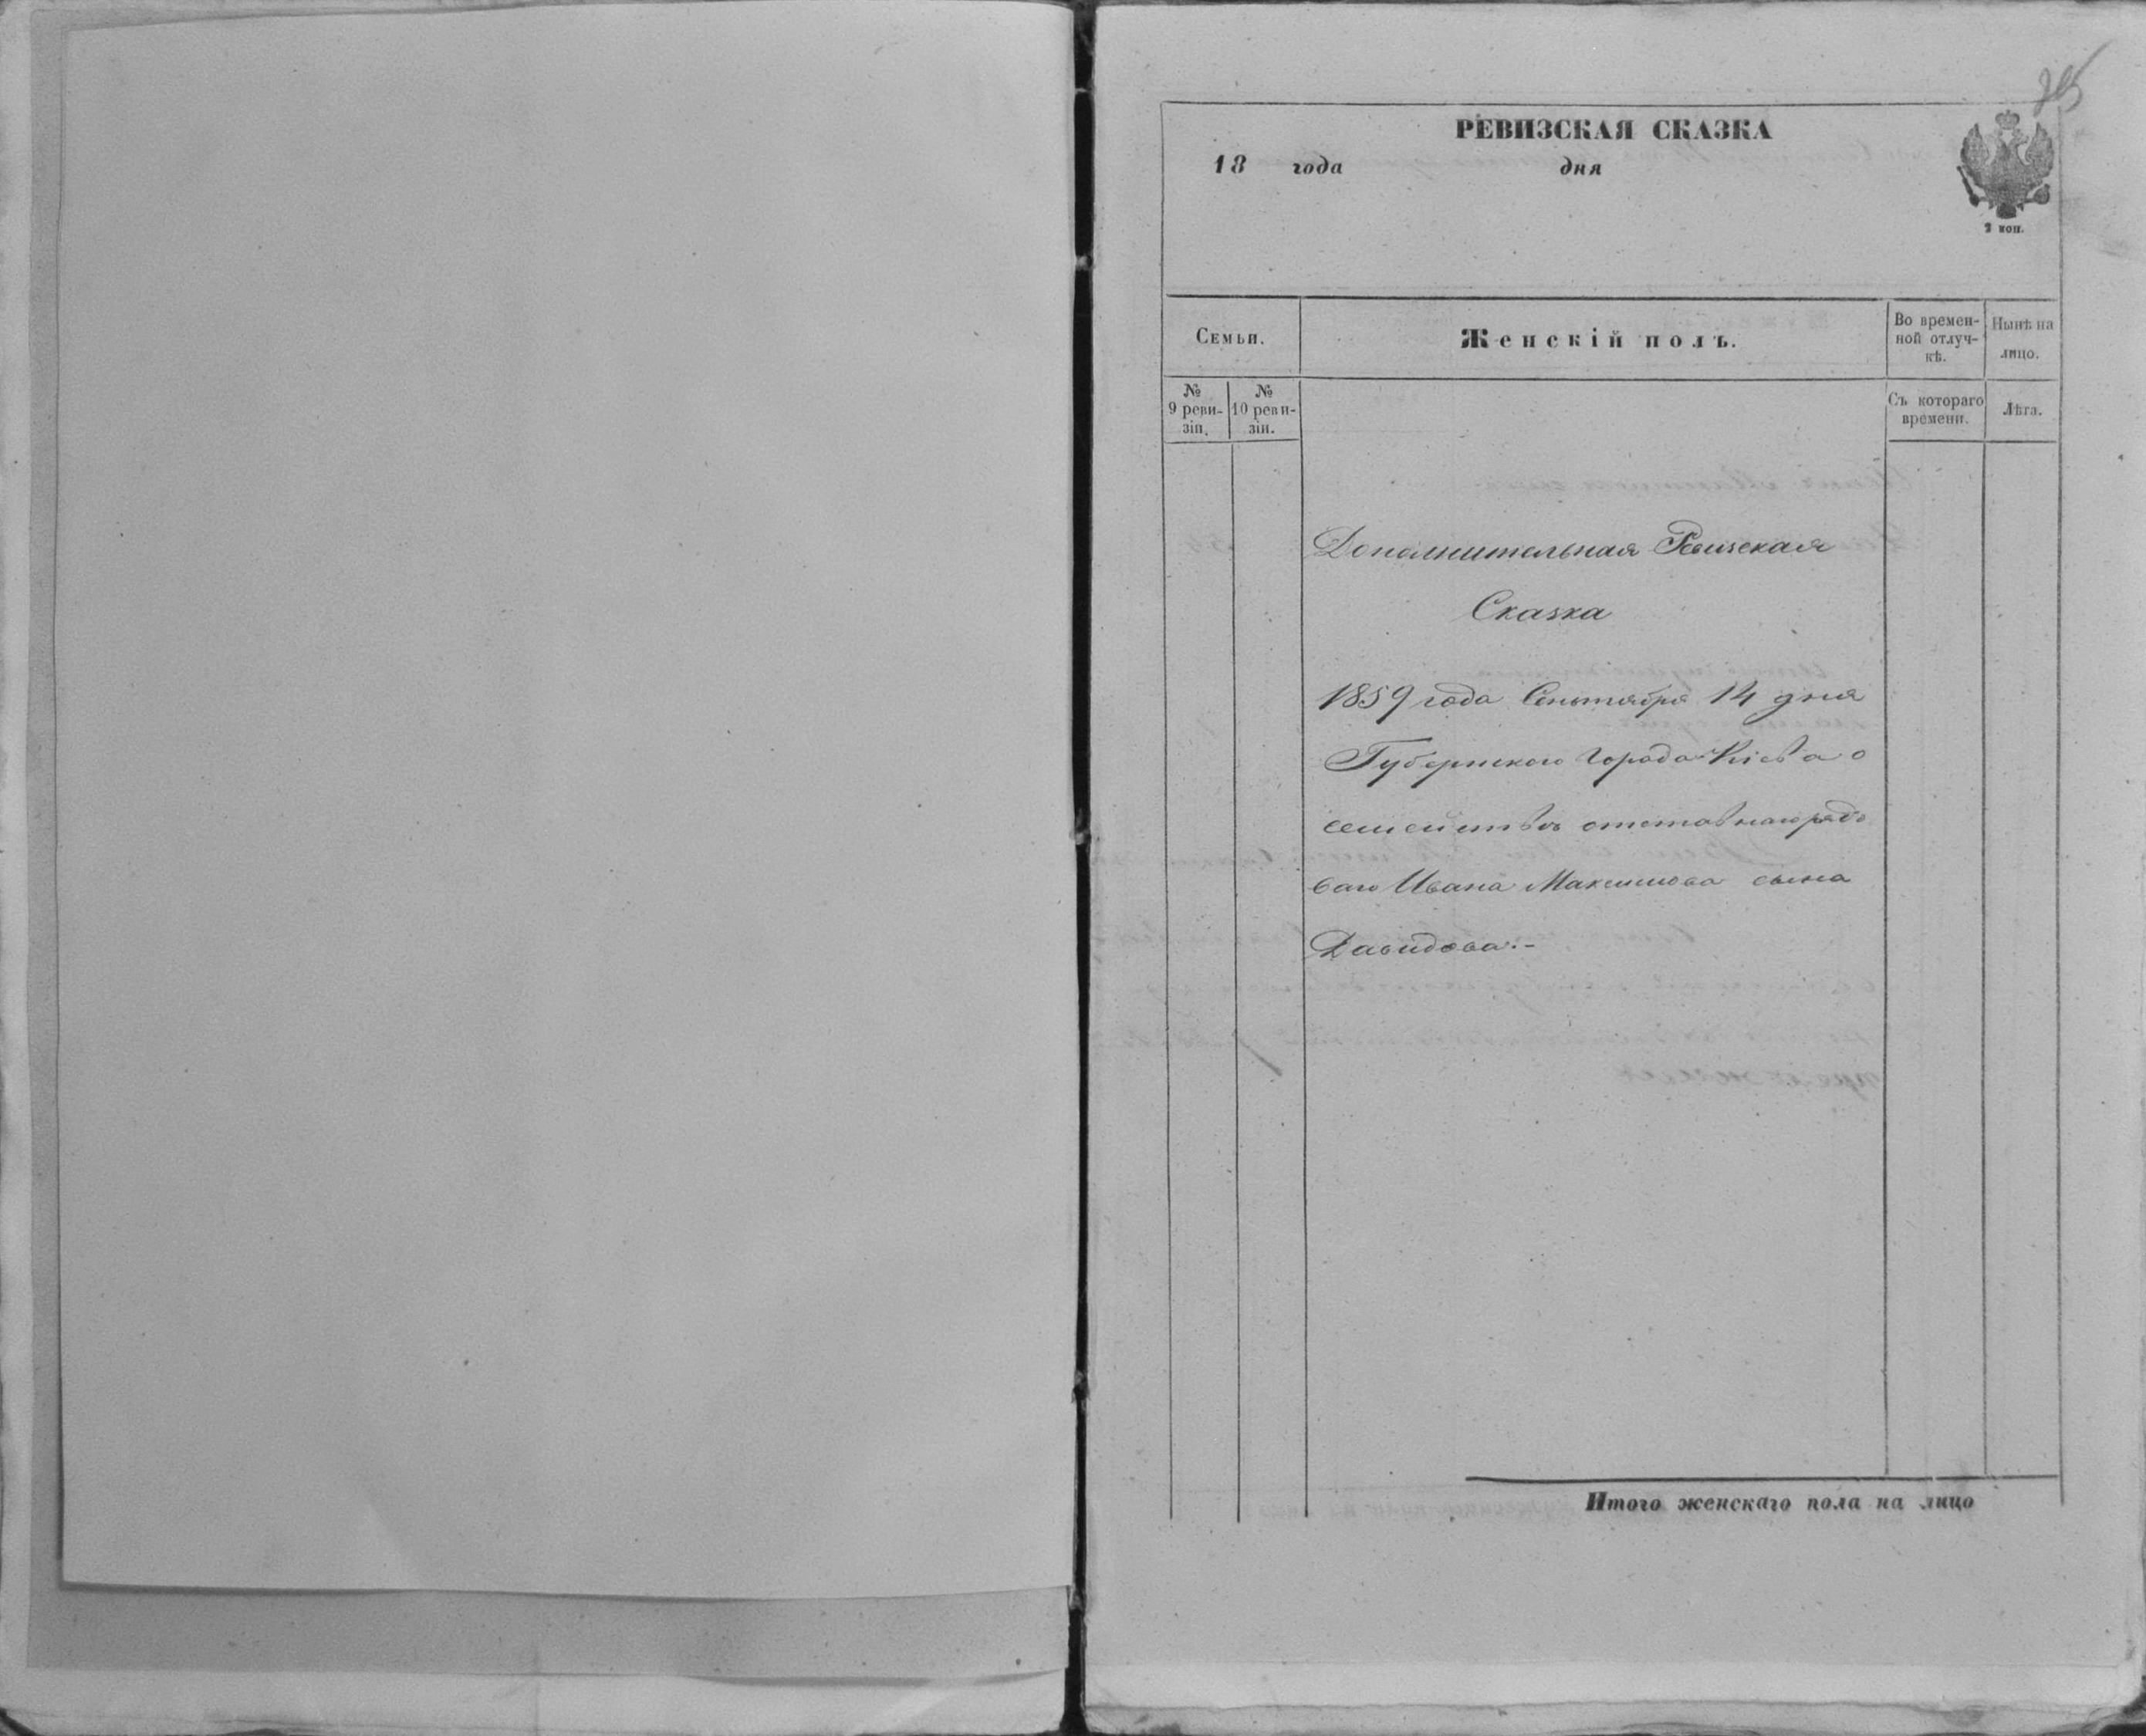 РЕВИЗСКАЯ СКАЗКА
18 года дня
2 коп.
Семьи.
Женскій полъ.
Во времен-
ной отлуч-
кѣ.
Нынѣ на
лицо.
№
9 реви-
зіи.
№
10 реви-
зіи.
Съ котораго
времени.
Лѣта.
Дополнительная Ревизская
Сказка
1859 года Сентября 14 дня
Губернского Города Кіева о
семействѣ отставнаго рядо
ваго Ивана Максимова сына
Давидова.-
Итого женскаго пола на лицо